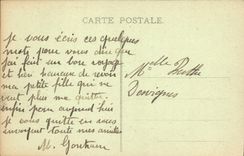 CARTE POSTALE
je vous écris ces quelques
mots pour vous dire que
j'ai fait un bon voyage
et suis heureux de revoir
ma petite fille qui ne
veut plus me quitter
enfin pour aujourd'hui
je vous quitte en vous
envoyant toute mes amitiés
M.
Mlle